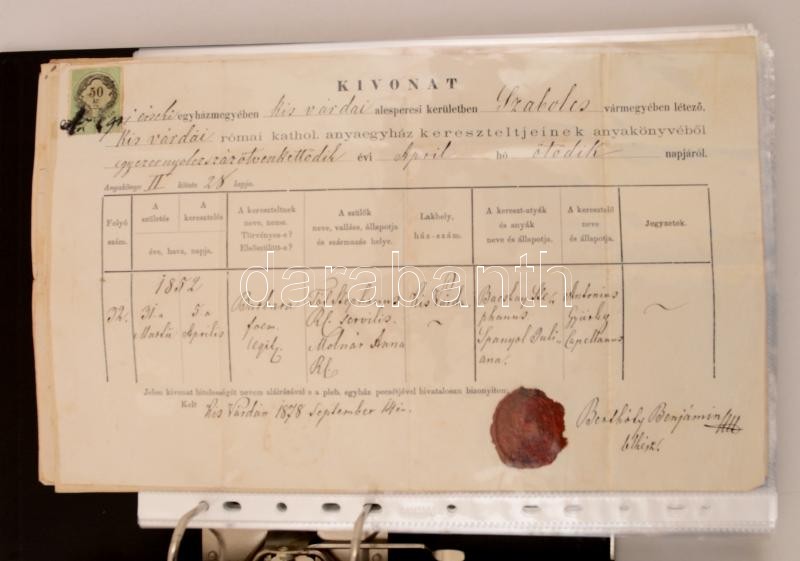 KIVONAT
50
egyházmegyében Kis várdai alesperesi kerületben Szabolcs vármegyében létező,
Kis várdai római kathol. anyaegyház kereszteltjeinek anyakönyvéből
egyezernyolczszázötvenkettődik évi April hó ötödik napjáról.
Anyakönyv II kötete 28 lapja.
Folyó szám.
A születés
A keresztelés
éve, hava, napja.
A kereszteltnek neve, neme. Törvényes-e? Elsőszülött-e?
A szülők neve, vallása, állapotja és származás helye.
Lakhely, ház-szám.
A kereszt-atyák és anyák neve és állapotja.
A keresztelő neve és állapotja.
Jegyzetek.
1852
32.
31-a Martii
5-a Aprilis
Barbara foem. legit.
Stephanus Rf. servilis.
Molnár Anna Rf.
Kis Várda
Stephanus
Spanyol Juliana.
Antonius György Capellanus
darabanth
Jelen kivonat hitelességét nevem aláirásával s a pleb. egyház pecsétjével hivatalosan bizonyitom.
Kelt Kis Várdán 1878 September 14én.
Benjámin
lelkész.